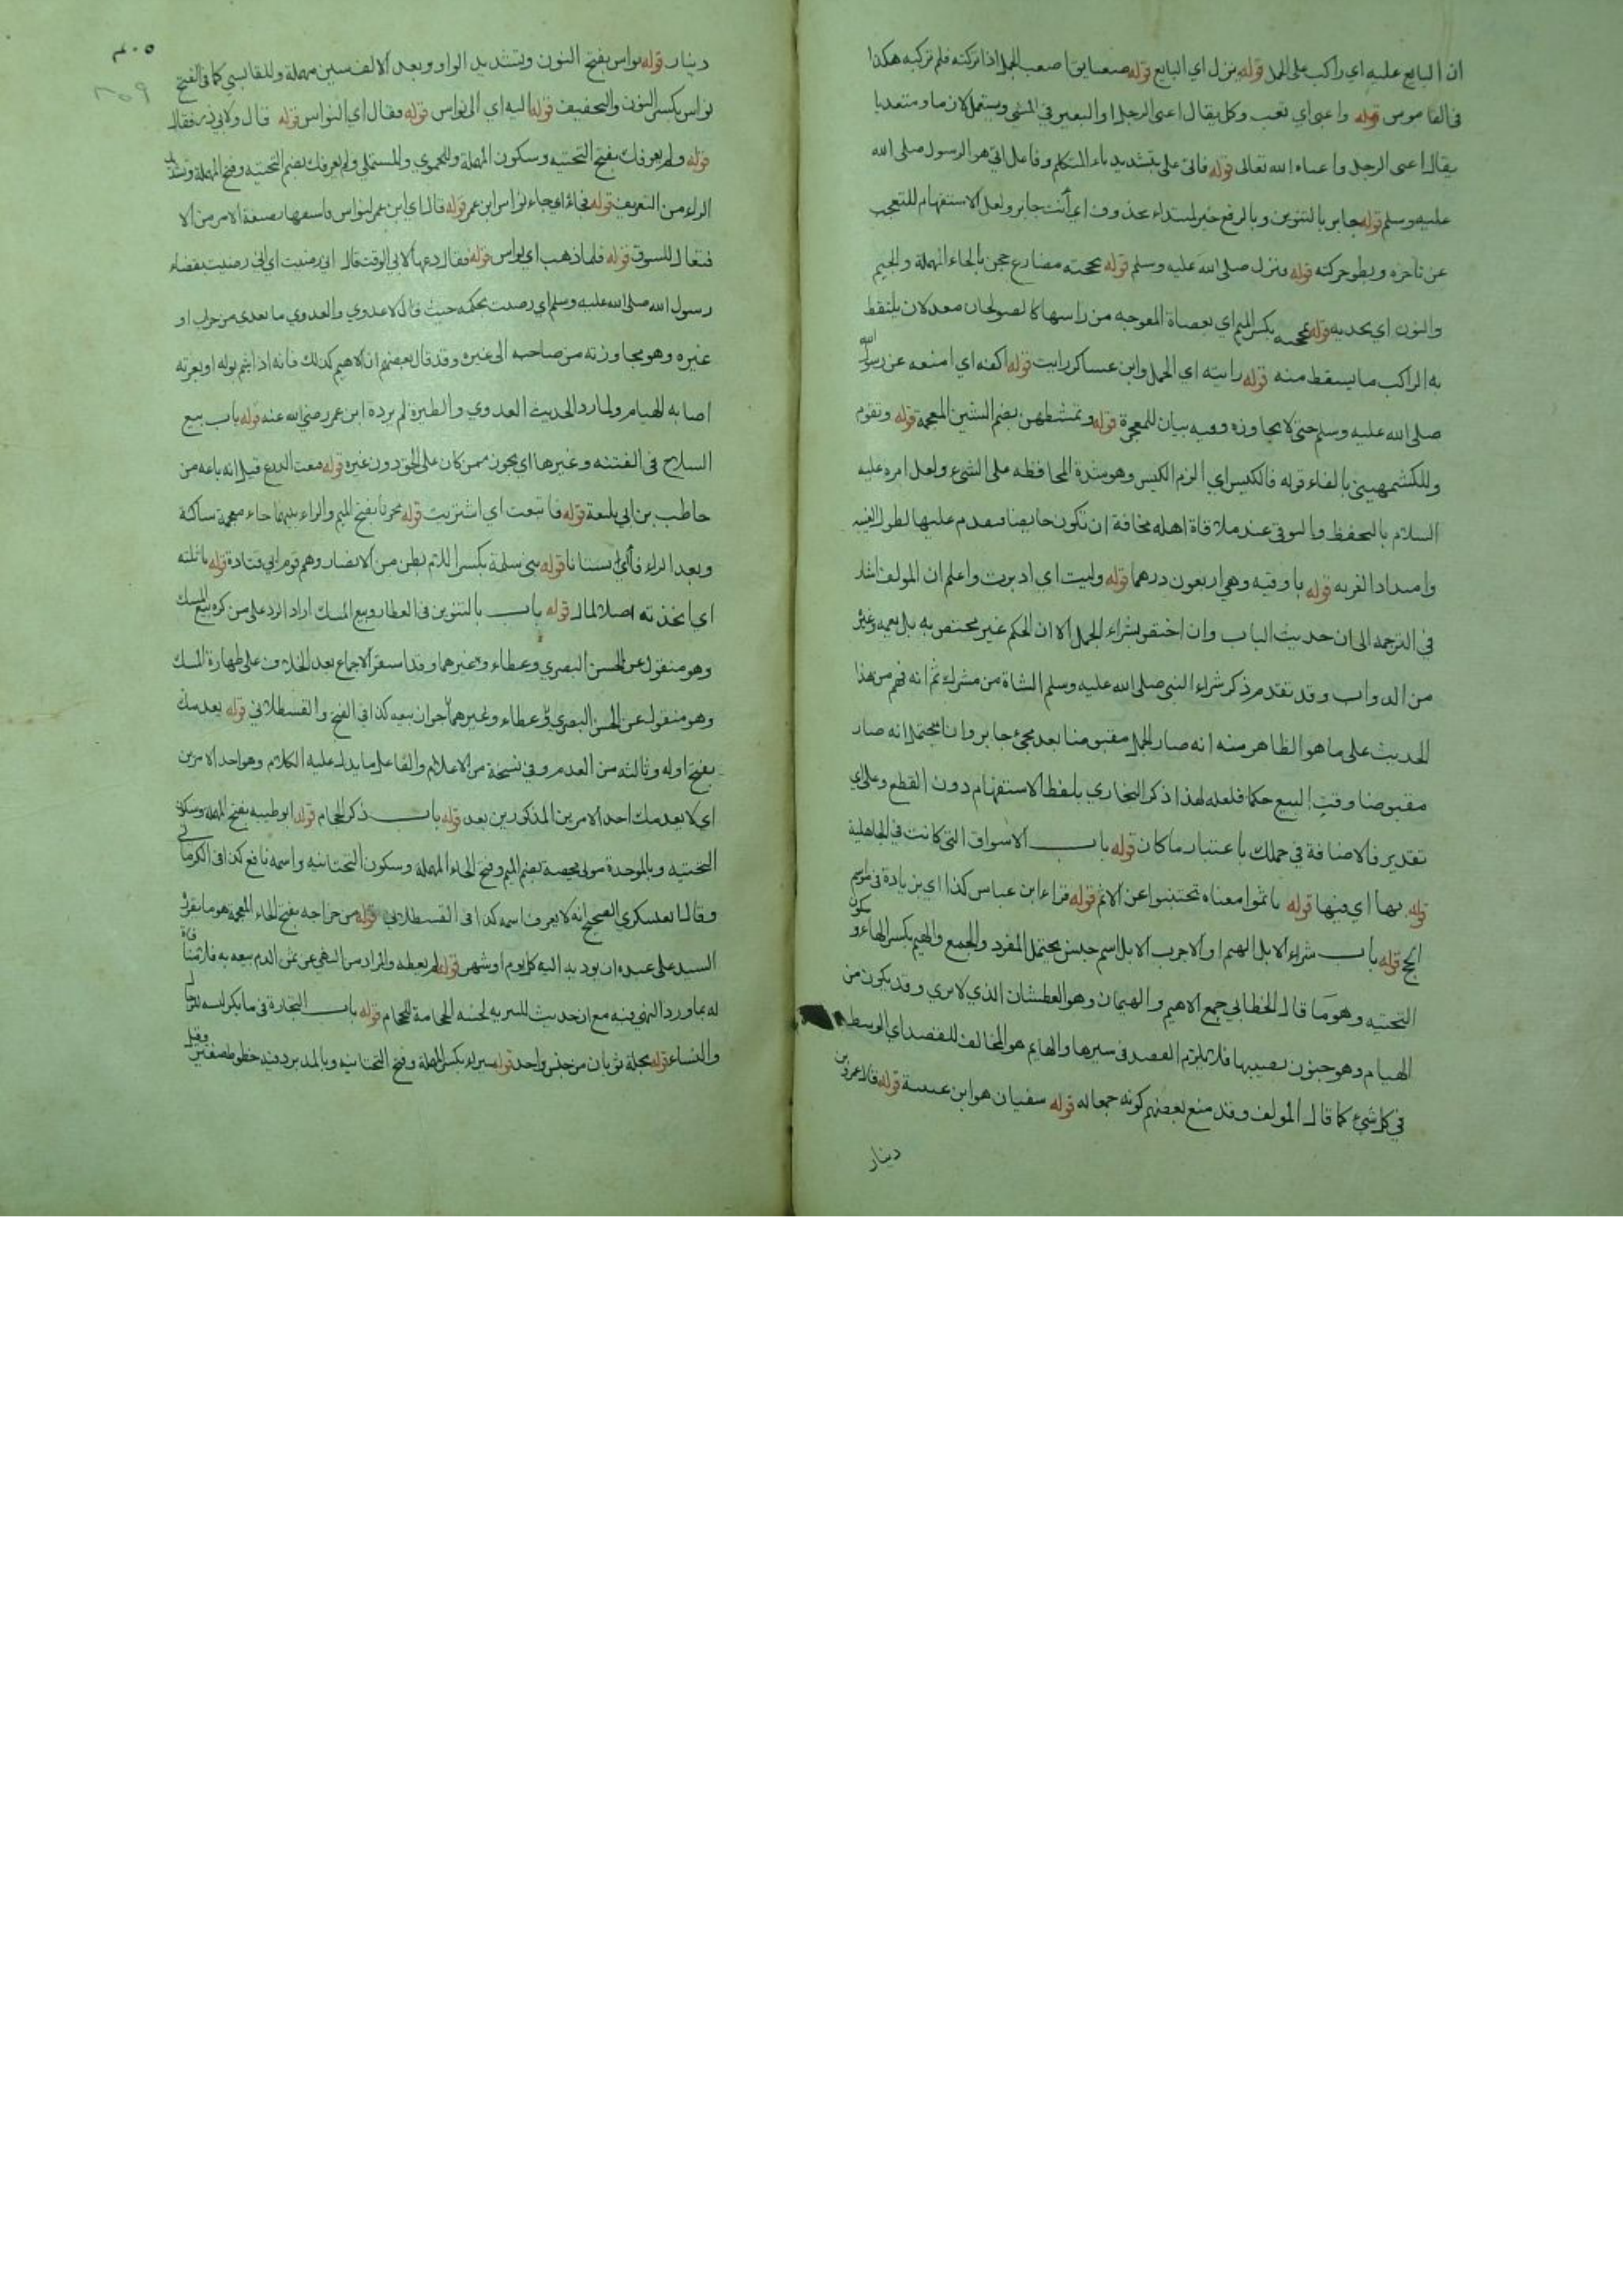 ان البايع عليه اي راكب على الجمل قوله ينزل اي البايع قوله صعبا يقا صعب الجمل اذا تركته فلم تركبه هكذا
في القاموس قوله واعيي اي تعب وكل يقال اعيى الرجل او البعير في المشي ويستعمل لازما ومتعديا
يقال اعيى الرجل واعياه الله تعالى قوله فاتى علي بتشديد ياء المتكلم وفاعل اتى هو الرسول صلى الله
عليه وسلم قوله جابر بالتنوين وبالرفع خبر لمبتداء محذوف اي أنت جابر ولعل الاستفهام للتعجب
عن تأخره وبطو حركته قوله فنزل صلى الله عليه وسلم قوله يحجنه مضارع حجن بالحاء المهملة والجيم
والنون اي يجذبه قوله بمحجنه بكسر الميم اي بعصاة المعوجه من راسها كالصولجان معد لان يلتقط
به الراكب ما يسقط منه قوله رايته اي الجمل وابن عساكر رايت قوله اكفه اي امنعه عن رسول الله
صلى الله عليه وسلم حتى لا يجاوزه وفيه بيان للمعجزة قوله وتمشطهن بضم الشين المعجمة قوله وتقوم
وللكشميهيني بالفاء قوله فالكيس اي الزم الكيس وهو شدة المحافظه على الشيء ولعل امره عليه
السلام بالتحفظ والتوقي عند ملاقاة اهله مخافة ان تكون حايضا فيقدم عليها لطول الغيبه
وامتداد الغربه قوله باوقيه وهي اربعون درهما قوله وليت اي ادبرت واعلم ان المولف اشار
في الترجمه الى ان حديث الباب وان اختص بشراء الجمل الا ان الحكم غير مختص به بل يعمه وغيره
من الدواب وقد تقدم ذكر شراء النبي صلى الله عليه وسلم الشاة من مشرك ثم انه فهم من هذا
الحديث على ما هو الظاهر منه انه صار الجمل مقبوضا بعد مجيء جابر وان يحتمل انه صار
مقبوضا وقت البيع حكما فلعله لهذا ذكر البخاري بلفظ الاستفهام دون القطع وعلى اي
تقدير فالاضافة في جملك باعتبار ما كان قوله باب الاسواق التي كانت في الجاهلية
قوله بها اي فيها قوله تأثموا معناه تجتنبوا عن الاثم قوله قراء ابن عباس كذا اي بزيادة في مواسم
الحج قوله باب شراء الابل الهيم او الاجرب الابل اسم جنس يحتمل المفرد والجمع والهيم بكسر الهاء وسكون
التحتيه وهو ما قال الخطابي جمع الاهيم والهيمان وهو العطشان الذي لا يروي وقد يكون من
الهيام وهو جنون يصيبها فلا تلزم القصد في سيرها والهايم هو المخالف للقصد اي الوسط
في كل شيء كما قال المؤلف وقد منع بعضهم كونه جمعا له قوله سفيان هو ابن عيينة قوله قال عمرو بن
دينار
دينار قوله نواس بفتح النون وتشديد الواو وبعد الالف سين مهملة وللقابسي كما في الفتح
نواس بكسر النون والتخفيف قوله اليه اي الى نواس قوله فقال اي النواس قوله قال ولابي ذر فقال
قوله ولم يعرفك بفتح التحتيه وسكون المهملة وللحموي والمستملي ولم يعرفك بضم التحتيه وفتح المهملة وتشديد
الراء من التعريف قوله فجاء اي جاء نواس ابن عمر قوله قال اي ابن عمر لنواس فاستقها بصيغة الامر من
قوله فلما ذهب اي نواس قوله فقال دعها لابي الوقت قال اي رضيت اي اني رضيت بقضاء
رسول الله صلى الله عليه وسلم اي رضيت بحكمه حيث قال لا عدوي والعدوي ما يعدي من جرب او
غيره وهو مجاوزته من صاحبه الى غيره وقد قال بعضهم ان الاهيم كذلك فانه اذا اشم بوله او بعرته
اصابه الهيام ولما رد الحديث العدوي والطيرة لم يرده ابن عمر رضي الله عنه قوله باب بيع
السلاح في الفتنه وغيرها اي يجوز ممن كان على الحق دون غيره قوله فبعت الدرع قيل انه باعه من
حاطب بن ابي بلتعة قوله فابتعت اي اشتريت قوله مخرفا بفتح الميم والراء بينهما خاء معجمة ساكنة
وبعد الراء فاء اي بستانا قوله بني سلمة بكسر اللام بطن من الانصار وهم قوم ابي قتادة قوله تاثلته
اي اتخذته اصلا لمال قوله باب بالتنوين في العطار وبيع المسك اراد الرد على من كره بيع المسك
وهو منقول عن الحسن البصري وعطاء وغيرهما وقد استقر الاجماع بعد الخلاف على طهارة المسك
وهو منقول عن الحسن البصري وعطاء وغيرهما جواز بيعه كذا في الفتح والقسطلاني قوله يعدمك
بفتح اوله وثالثه من العدم وفي نسخة من الاعلام والفاعل ما يدل عليه الكلام وهو احد الامرين
اي لا يعدمك احد الامرين المذكورين بعد قوله باب ذكر الحجام قوله ابو طيبه بفتح المهملة وسكون
التحتيه وبالموحدة مولى محيصه بضم الميم وفتح الحاء المهملة وسكون التحتانيه واسمه نافع كذا في الكرماني
وقال العسكري الصحيح انه لا يعرف اسمه كذا في القسطلاني قوله من خراجه بفتح الخاء المعجمه هو ما يقرره
السيد على عبده ان يوديه اليه كل يوم او شهر قوله لم يعطه والمراد من النهي عن ثمن الدم بيعه به فلا
له بما ورد النهي فيه مع ان حديث قوله باب التجارة في ما يكره لبسه للرجال
والنساء قوله بحلة ثوبان من جنس واحد قوله سيراء بكسر المهملة وفتح التحتانيه وبالمد برد فيه خطوط صفر وقيل